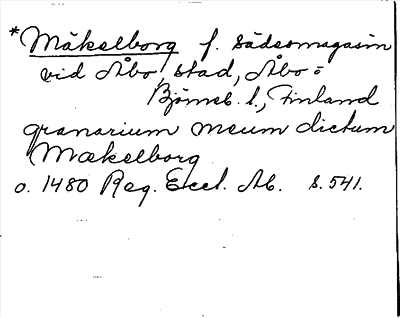 *Mäkelborg f. sädesmagasin
vid Åbo stad, Åbo=
Björneb. l., Finland
granarium meum dictum
Mækelborg
o. 1480 Reg. Eccl. Ab. s. 541.